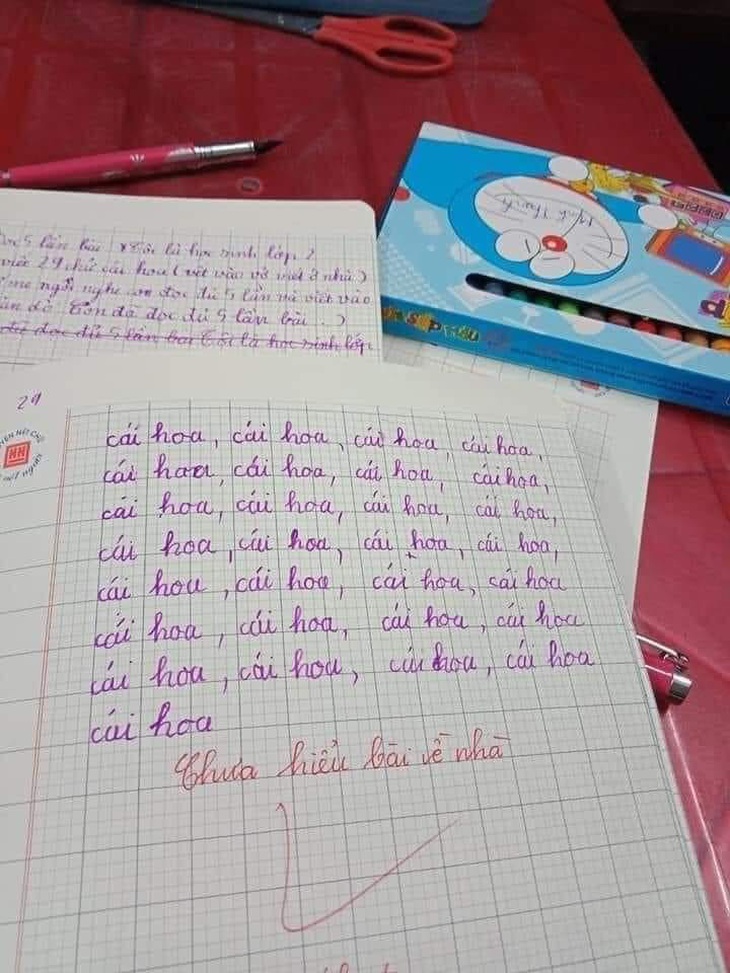 Đọc 5 lần bài : Tôi là học sinh lớp 2
viết 29 chữ cái hoa ( viết vào vở viết ở nhà )
mẹ ngồi nghe con đọc đủ 5 lần và viết vào
Con đã đọc đủ 5 lần bài ... )
đã đọc đủ 5 lần bài Tôi là học sinh lớp
Minh Thanh
SÁP MÀU
29
cái hoa, cái hoa, cái hoa, cái hoa,
cái hoa, cái hoa, cái hoa, cái hoa,
cái hoa, cái hoa, cái hoa, cái hoa,
cái hoa, cái hoa, cái hoa, cái hoa,
cái hoa, cái hoa, cái hoa, cái hoa
cái hoa, cái hoa, cái hoa, cái hoa
cái hoa, cái hoa, cái hoa, cái hoa
cái hoa
Chưa hiểu bài về nhà